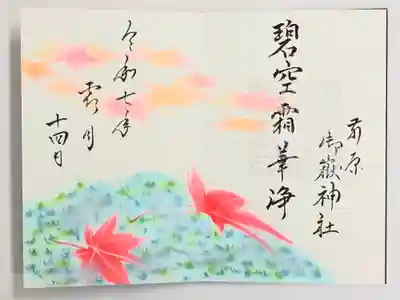 前原
御嶽神社
碧空霜華浄
令和七年
霜月
十四日